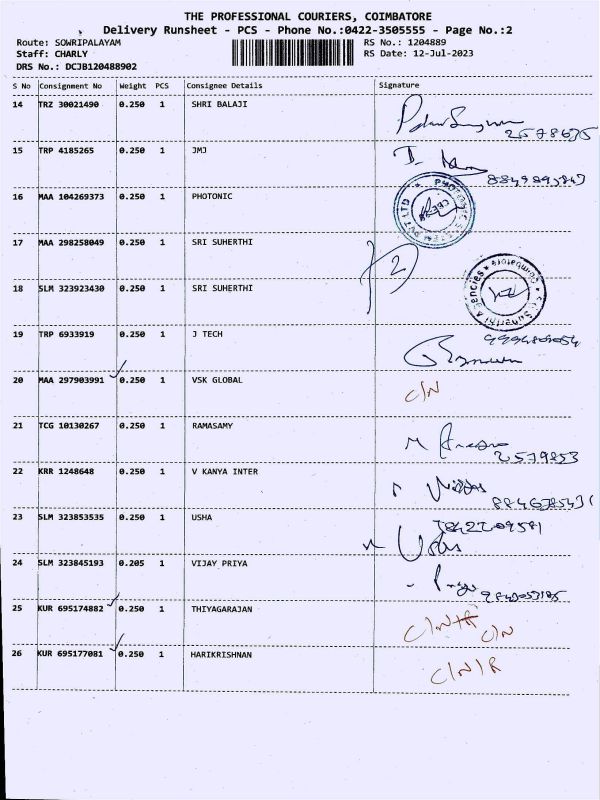 THE PROFESSIONAL COURIERS, COIMBATORE
Delivery Runsheet - PCS - Phone No.:0422-3505555 - Page No.:2
Route: SOWRIPALAYAM RS No.: 1204889
Staff: CHARLY RS Date: 12-Jul-2023
DRS No.: DCJB120488902
S No Consignment No Weight PCS Consignee Details Signature
14 TRZ 30021490 0.250 1 SHRI BALAJI
2578675
15 TRP 4185265 0.250 1 JMJ
16 MAA 104269373 0.250 1 PHOTONIC
17 MAA 298258049 0.250 1 SRI SUHERTHI
2
18 SLM 323923430 0.250 1 SRI SUHERTHI
Sri Suherthi Agencies * Coimbatore *
19 TRP 6933919 0.250 1 J TECH
20 MAA 297903991 0.250 1 VSK GLOBAL C/N
21 TCG 10130267 0.250 1 RAMASAMY
2579853
22 KRR 1248648 0.250 1 V KANYA INTER
23 SLM 323853535 0.250 1 USHA
Usha
24 SLM 323845193 0.205 1 VIJAY PRIYA
25 KUR 695174882 0.250 1 THIYAGARAJAN C/N
26 KUR 695177081 0.250 1 HARIKRISHNAN C/N/R